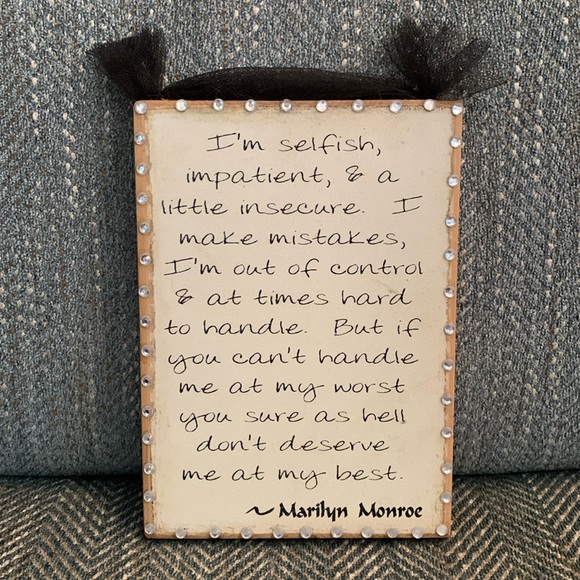 I'm selfish,
impatient, & a
little insecure. I
make mistakes,
I'm out of control
& at times hard
to handle. But if
you can't handle
me at my worst
you sure as hell
don't deserve
me at my best.
~ Marilyn Monroe